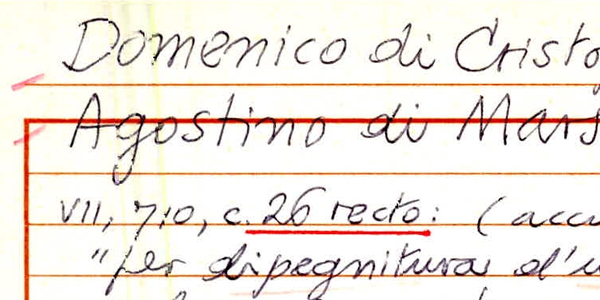 Domenico di Cristo
Agostino di Mars
VII, 7,0, c. 26 recto: (accu
"per dipegnitura d'u